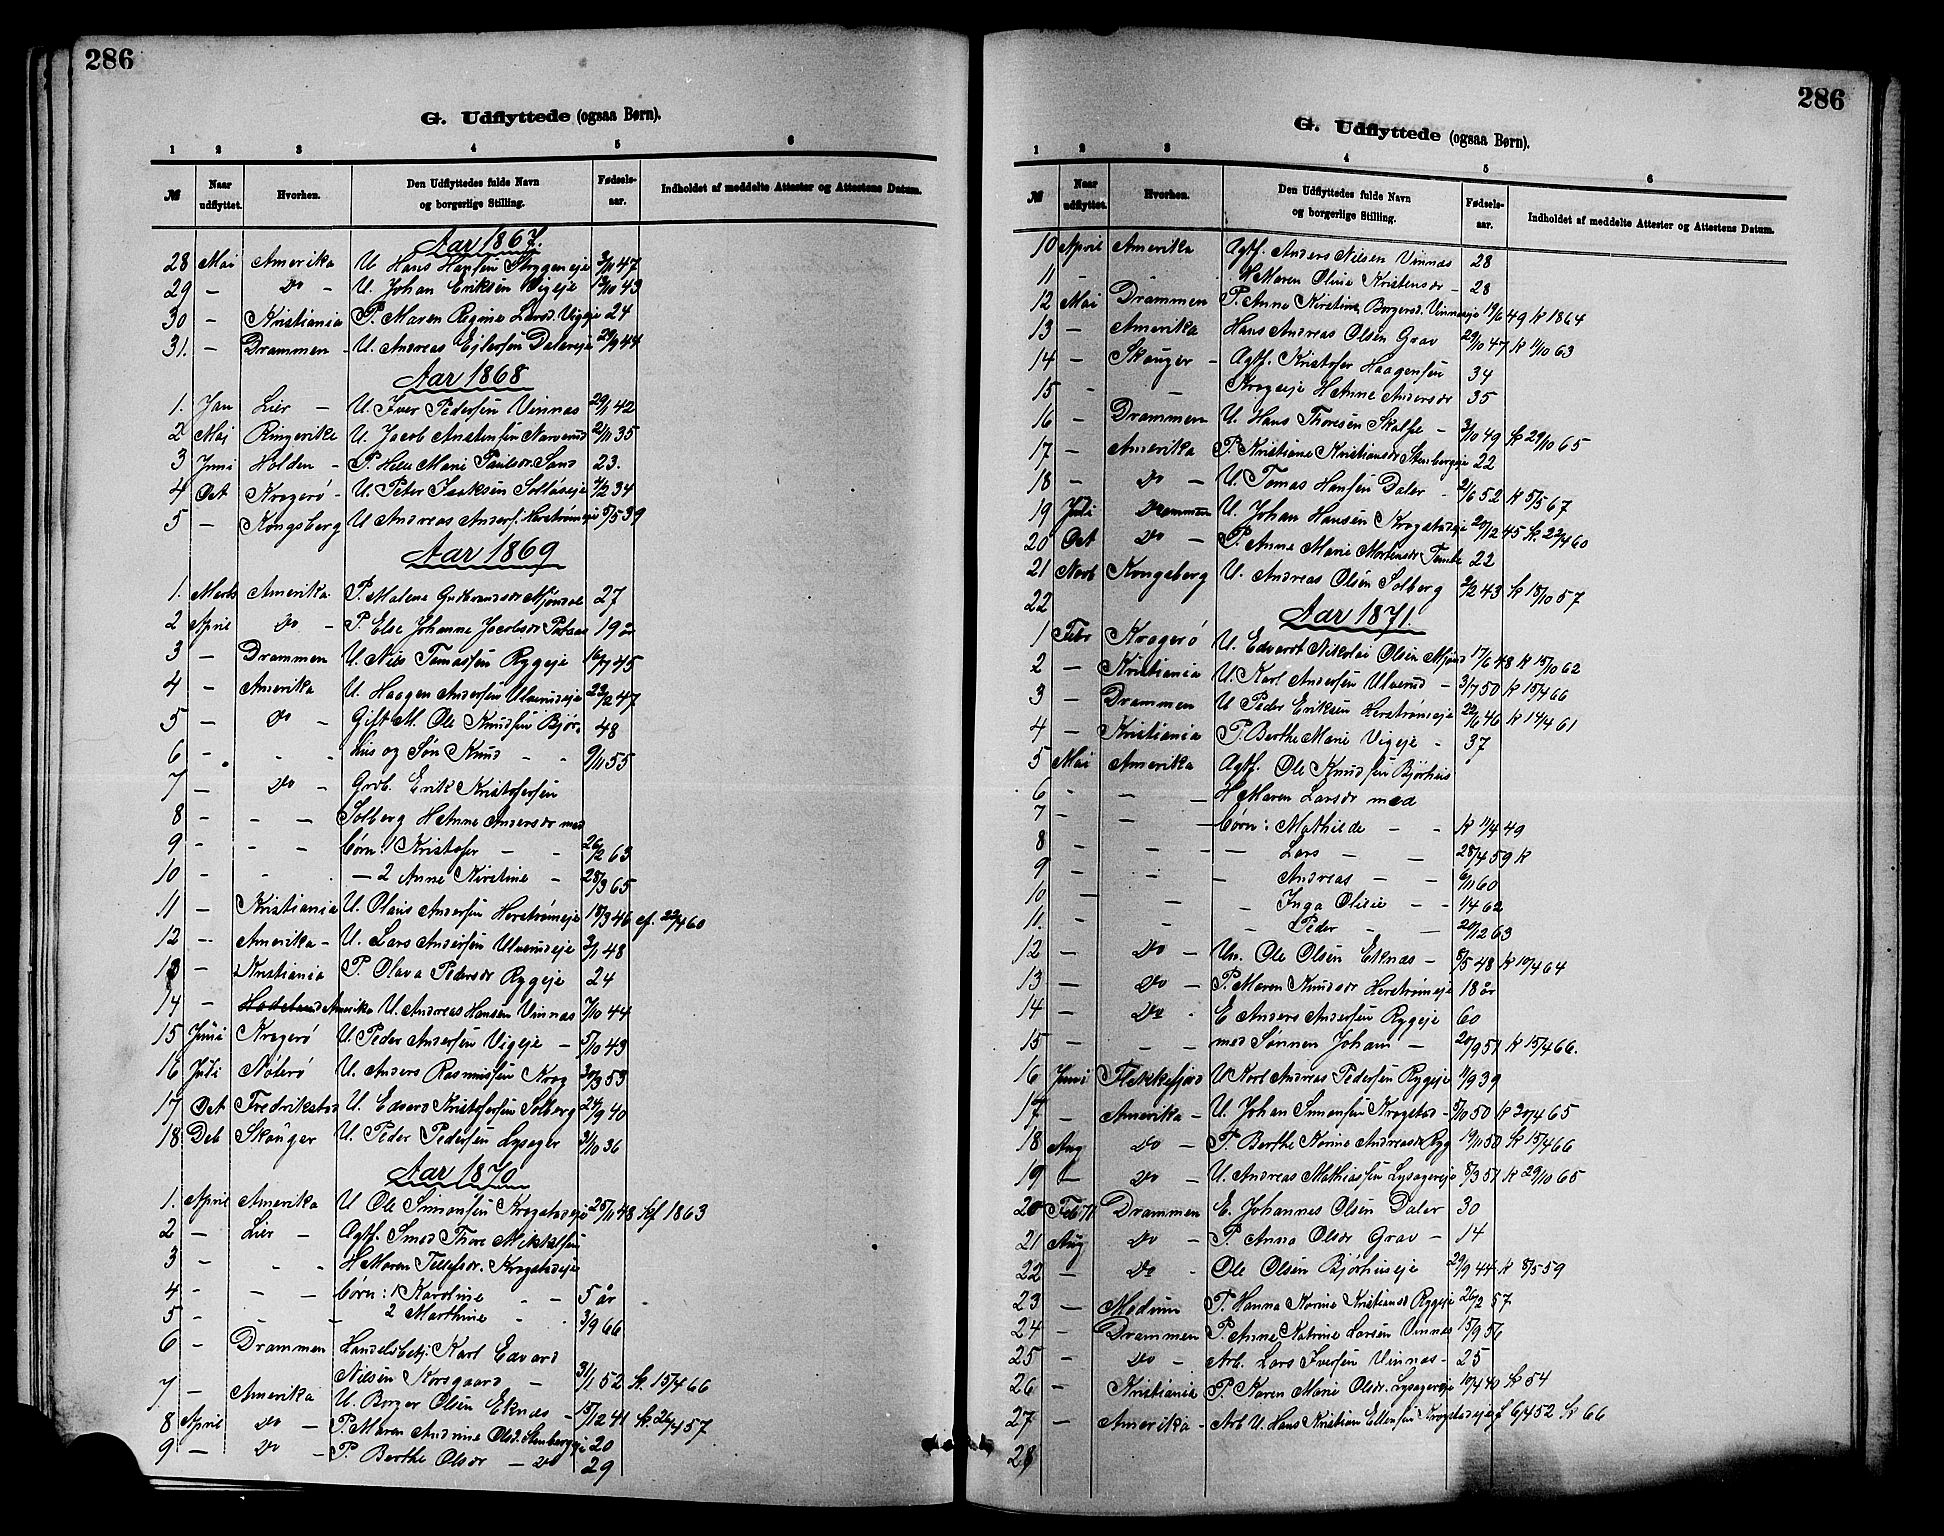 286
G. Udflyttede (ogsaa Børn).
1 2 3 4 5 6
№ Naar udflyttet. Hvorhen. Den Udflyttedes fulde Navn og borgerlige Stilling. Fødselsaar. Indholdet af meddelte Attester og Attestens Datum.
Aar 1867.
28 Mai Amerika U. Hans Hansen Styggeneje 3/1 47
29 — Do — U. Johan Eriksen Vigeje 12/10 43
30 — Kristiania P. Maren Regine Larsd. Vigeje 24
31. — Drammen — U. Andreas Ejlersen Dalereje 29/9 44
Aar 1868
1. Jan Lier — U. Iver Pedersen Vinnas 29/1 42
2 Maj Ringerike U. Jacob Anstensen Narverud 21/11 35
3 Juni Holden — P. Helle Marie Paulsdr. Sand 23.
4 Oct Kragerø — U. Peter Isaksen Solløseje 4/2 34
5 — Kongsberg U. Andreas Anders. Herstrømeje 5/5 39
Aar 1869
1. Marts Amerika P. Malene Gudbrandsdr Mjøndal 27
2 April Do — P. Else Johanne Jacobsdr 19 år
3 — Drammen U. Nils Tomassen Rygeje 16/7 45
4 — Amerika U. Haagen Andersen Ulverudeje 22/2 47
5 — Do — Gift M. Ole Knudsen Bjør- 48
6 - - - hus og Søn Knud - - 9/11 55
7 — Do — Grdb. Erik Kristofersen
8 — - — Solberg H Anne Andersdr med
9 — - — børn: 1 Kristofer — - 26/2 63
10 — - — 2 Anne Kirstine — 28/3 65
11 — Kristiania U. Olaus Andersen Herstrømeje 18/3 46 cf. 22/4 60
12 — Amerika — U. Lars Andersen Ulverudeje 3/1 48
13 — Kristiania P. Olava Pedersdr Rygeje 24
14 — Amerika U. Andreas Hansen Vinnas 7/10 44
15 Juni Kragerø U. Peder Andersen Vigeje — 5/10 43
16 Juli Nøterø U. Anders Rasmussen Krog 30/3 53
17 Oct Fredrikstad U. Edvard Kristofersen Solberg 24/9 40
18 Deb Skouger U. Peder Pedersen Lysager 3/10 36
Aar 1870
1. April Amerika U Ole Simonsen Krogstadeje 25/11 48 Kf 1863
2 — Lier — Agtf. Smed Thore Mikkelsen
3 — - - H Maren Tollefsdr. Krogstadeje
4 - - — børn: 1 Karoline - - 5 år
5 - - — 2 Marthine - - 3/9 66
6 — Drammen Handelsbetj: Karl Edvard
Nilsen Korsgaard — 31/1 52 K. 15/4 66
7 — Amerika U. Borger Olsen Eknas — 15/12 41 K. 26/4 57
8 April Do — P. Maren Andrine Olsd. Stenbergeje 20
9 — Do — P. Berthe Olsdr — Do 29
286
G. Udflyttede (ogsaa Børn).
1 2 3 4 5 6
№ Naar udflyttet. Hvorhen. Den Udflyttedes fulde Navn og borgerlige Stilling. Fødselsaar. Indholdet af meddelte Attester og Attestens Datum.
10 April Amerika Agtf. Anders Nilsen Vinnas 28
11 - - H Maren Oline Kristensdr — 28
12 Mai Drammen P. Anne Kirstine Borgersd. Vinnaseje 19/6 49 K 1864
13 — Amerika Hans Andreas Olsen Grav 29/10 47 K 1/10 63
14 — Skouger — Agtf. Kristofer Haagensen 34
15 - — Krogeje H Anne Andersdr 35
16 — Drammen U. Hans Thoresen Skalpe — 3/10 49 K 29/10 65
17 — Amerika P. Kristiane Kristiansdr Stenbergeje 22
18 — Do — U. Tomas Hansen Daler — 2/6 52 K 5/5 67
19 Juli Drammen U. Johan Hansen Krogstadeje 29/12 45 K. 22/4 60
20 Oct Do — P. Anne Marie Mortensdr Temte 22
21 Novb Kongsberg U. Andreas Olsen Solberg 2/2 43 K 18/10 57
22
Aar 1871.
1 Febr Kragerø U. Edvardt Nikolai Olsen Mjønd 17/6 48 K 15/10 62
2 — Kristiania U. Karl Andersen Ulverud — 3/7 50 K 15/4 66
3 — Drammen U Peder Eriksen Herstrømeje 22/6 46 K 14/4 61
4 — Kristiania P. Berthe Marie Vigeje — 37
5 Mai Amerika Agtf. Ole Knudsen Bjørhus
6 - — — H Maren Larsdr med
7 — — — børn: Mathilde — - K 11/4 49
8 - - — Lars — — 28/4 59 K
9 - - - Andreas — — 6/11 60
10 — - — Inga Olise — - 1/4 62
11. - - - Peder — — 20/12 63
12 — Do — Un. Ole Olsen Eknas — 8/5 48 K 10/4 64
13 — Do — P. Maren Knudsdr Herstrømeje 18 år
14 — Do - E Anders Andersen Rygeje 60
15 — - — med Sønnen Johan — 20/9 51 K 15/4 66.
16 Juni Flekkefjord U Karl Andreas Pedersen Rygeje 11/9 39
17 — Amerika — U. Johan Simonsen Krogstad — 5/10 50 K 20/4 65
18 Aug Do — P. Berthe Karine Andreasdr Ryg 19/11 50 K 15/4 66
19 — Do — U. Andreas Mathiassen Lysagereje 8/3 51 K 29/10 65
20 Feb 71 Drammen E. Johannes Olsen Daler 30
21 Aug Do — P. Anna Olsdr Grav — 14
22 — Do — Ole Olsen Bjørhuseje 29/9 44 K 8/5 59
23 — Modum P. Hanna Karine Kristiansd Rygeje 26/2 57
24 — Drammen P. Anne Katrine Larsen Vinnas 15/9 56
25 — Do — Arb. Lars Iversen Vinnas — 25
26 — Kristiania P. Karen Marie Olsdr. Lysagereje 10/4 40 K 54
27 — Amerika — Arb U. Hans Kristian Ellensen Krogstadeje f 6/4 52 K 66
28